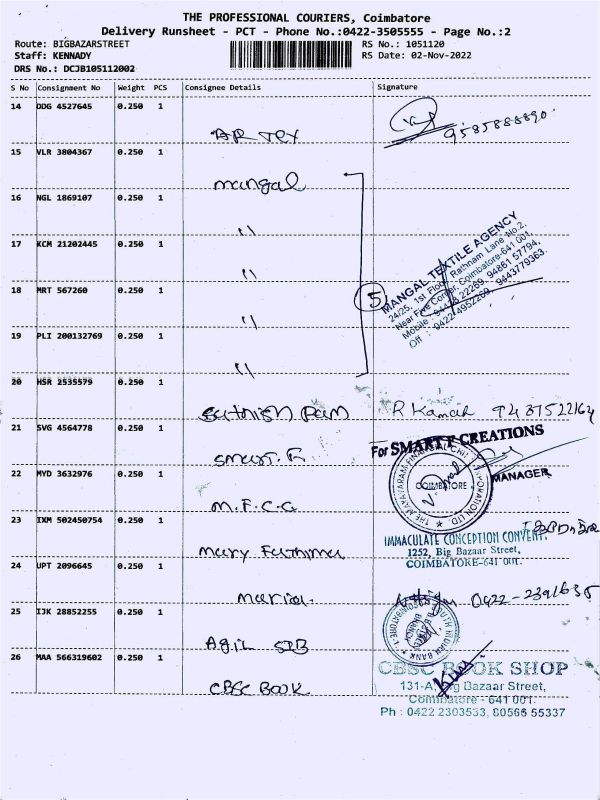 THE PROFESSIONAL COURIERS, Coimbatore
Delivery Runsheet - PCT - Phone No.:0422-3505555 - Page No.:2
Route: BIGBAZARSTREET RS No.: 1051120
Staff: KENNADY RS Date: 02-Nov-2022
DRS No.: DCJB105112002
S No Consignment No Weight PCS Consignee Details Signature
14 ODG 4527645 0.250 1
AR Tex 9585888890
15 VLR 3804367 0.250 1
mangal
16 NGL 1869107 0.250 1
"
17 KCM 21202445 0.250 1
"
18 MRT 567260 0.250 1
" 5
MANGAL TEXTILE AGENCY
24/25, 1st Floor, Rathnam Lane No.2,
Near Five Corner, Coimbatore-641 001.
Mobile : 22269, 94861 57794,
Off : 0422-4952269, 9443779363.
19 PLI 200132769 0.250 1
"
20 HSR 2535579 0.250 1
Sathish Ram R Kamesh
21 SVG 4564778 0.250 1
For SMART F CREATIONS
Smart. F
MANAGER
22 MYD 3632976 0.250 1
COIMBATORE
M.F.C.C
23 IXM 502450754 0.250 1
IMMACULATE CONCEPTION CONVENT,
1252, Big Bazaar Street,
COIMBATORE-641 001.
Mary Fathima
24 UPT 2096645 0.250 1
Maria. 0422-2391635
25 IJK 28852255 0.250 1
SOUTH INDIAN BANK
Agil SIB
26 MAA 566319602 0.250 1
CBSC BOOK SHOP
CBSC BOOK
131-A, Big Bazaar Street,
Coimbatore - 641 001.
Ph : 0422 2303533, 80566 55337